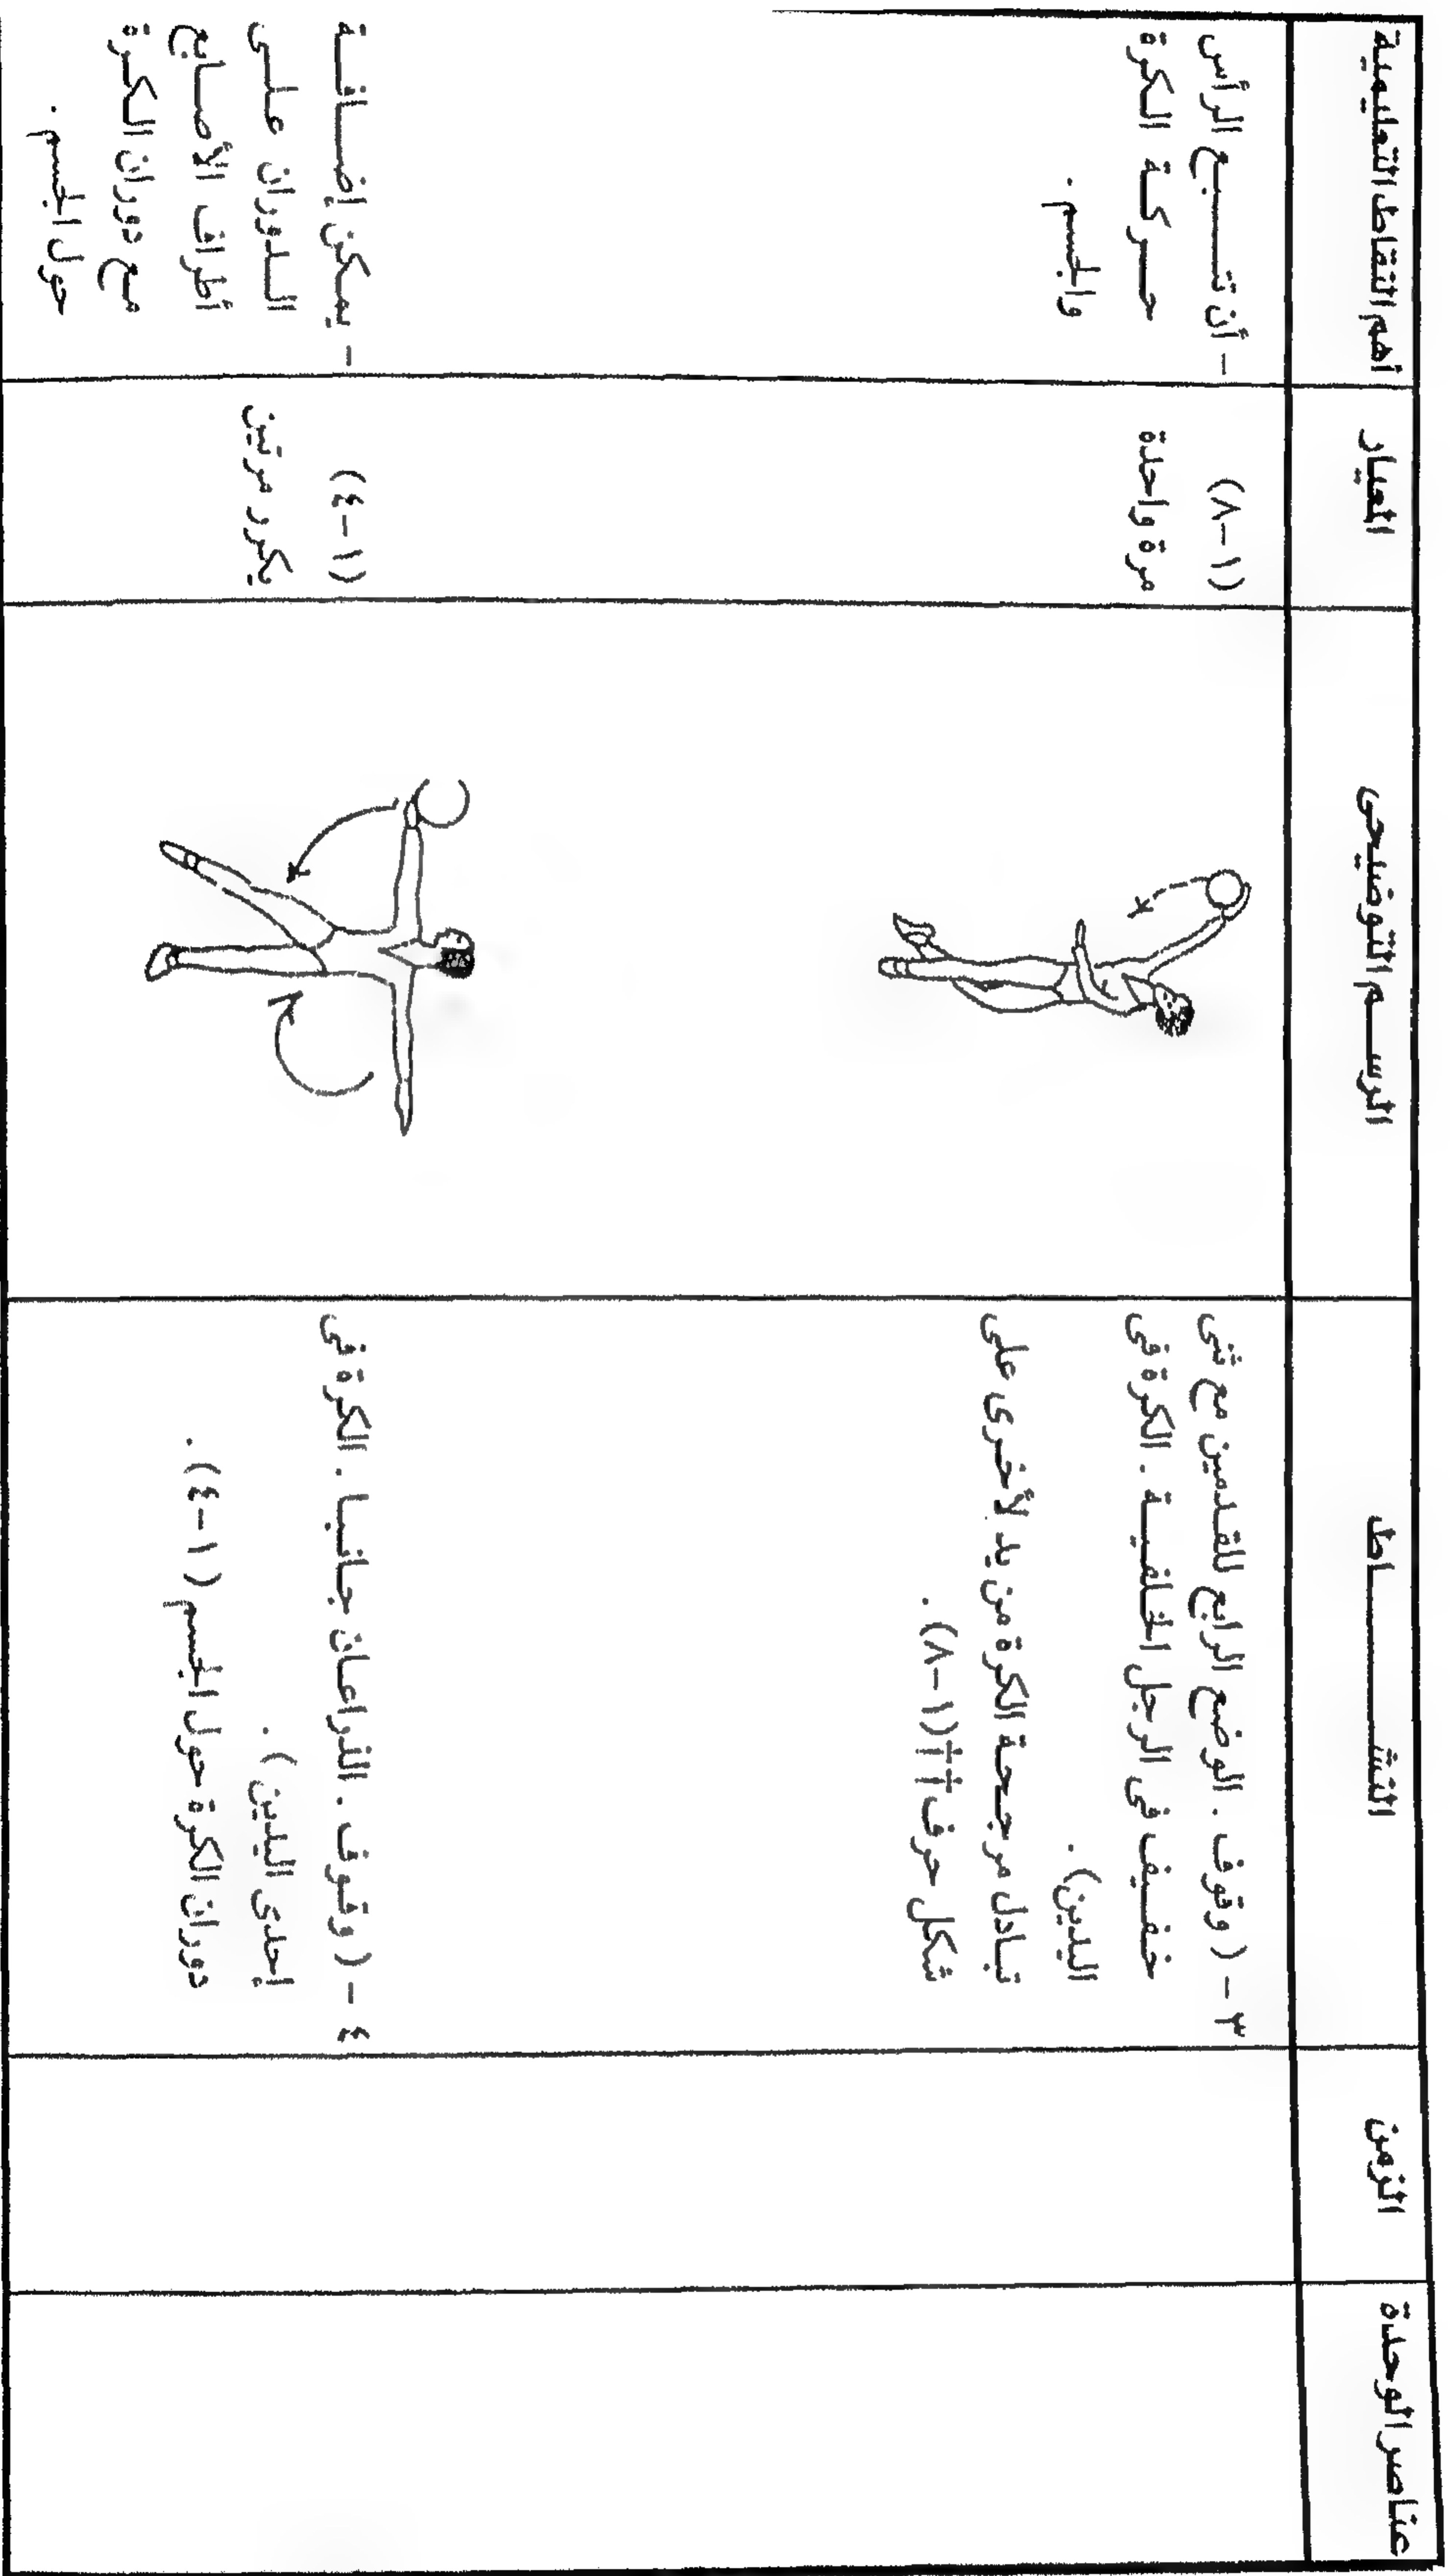 عناصر الوحدة
الزمن
النشـــــــاط
الرســم التوضيحى
المعيار
أهم النقاط التعليمية
٣ - ( وقوف . الوضع الرابع للقدمين مع ثنى
خفـيـف فى الرجل الخلفـيـة . الكرة فى
اليدين) .
تبادل مرجحة الكرة من يد لأخرى على
شكل حرف †† (١-٨) .
(١-٨)
مرة واحدة
- أن تـــتـــبع الرأس
حـركــة الكرة
والجسم .
٤ - ( وقـوف . الذراعـان جـانبـا . الكرة فى
إحدى اليدين ) .
دوران الكرة حول الجسم (١-٤) .
(١-٤)
يكرر مرتين
- يمكـن إضــافــة
الــدوران عـلــى
أطراف الأصـابع
مع دوران الكـرة
حول الجسم .